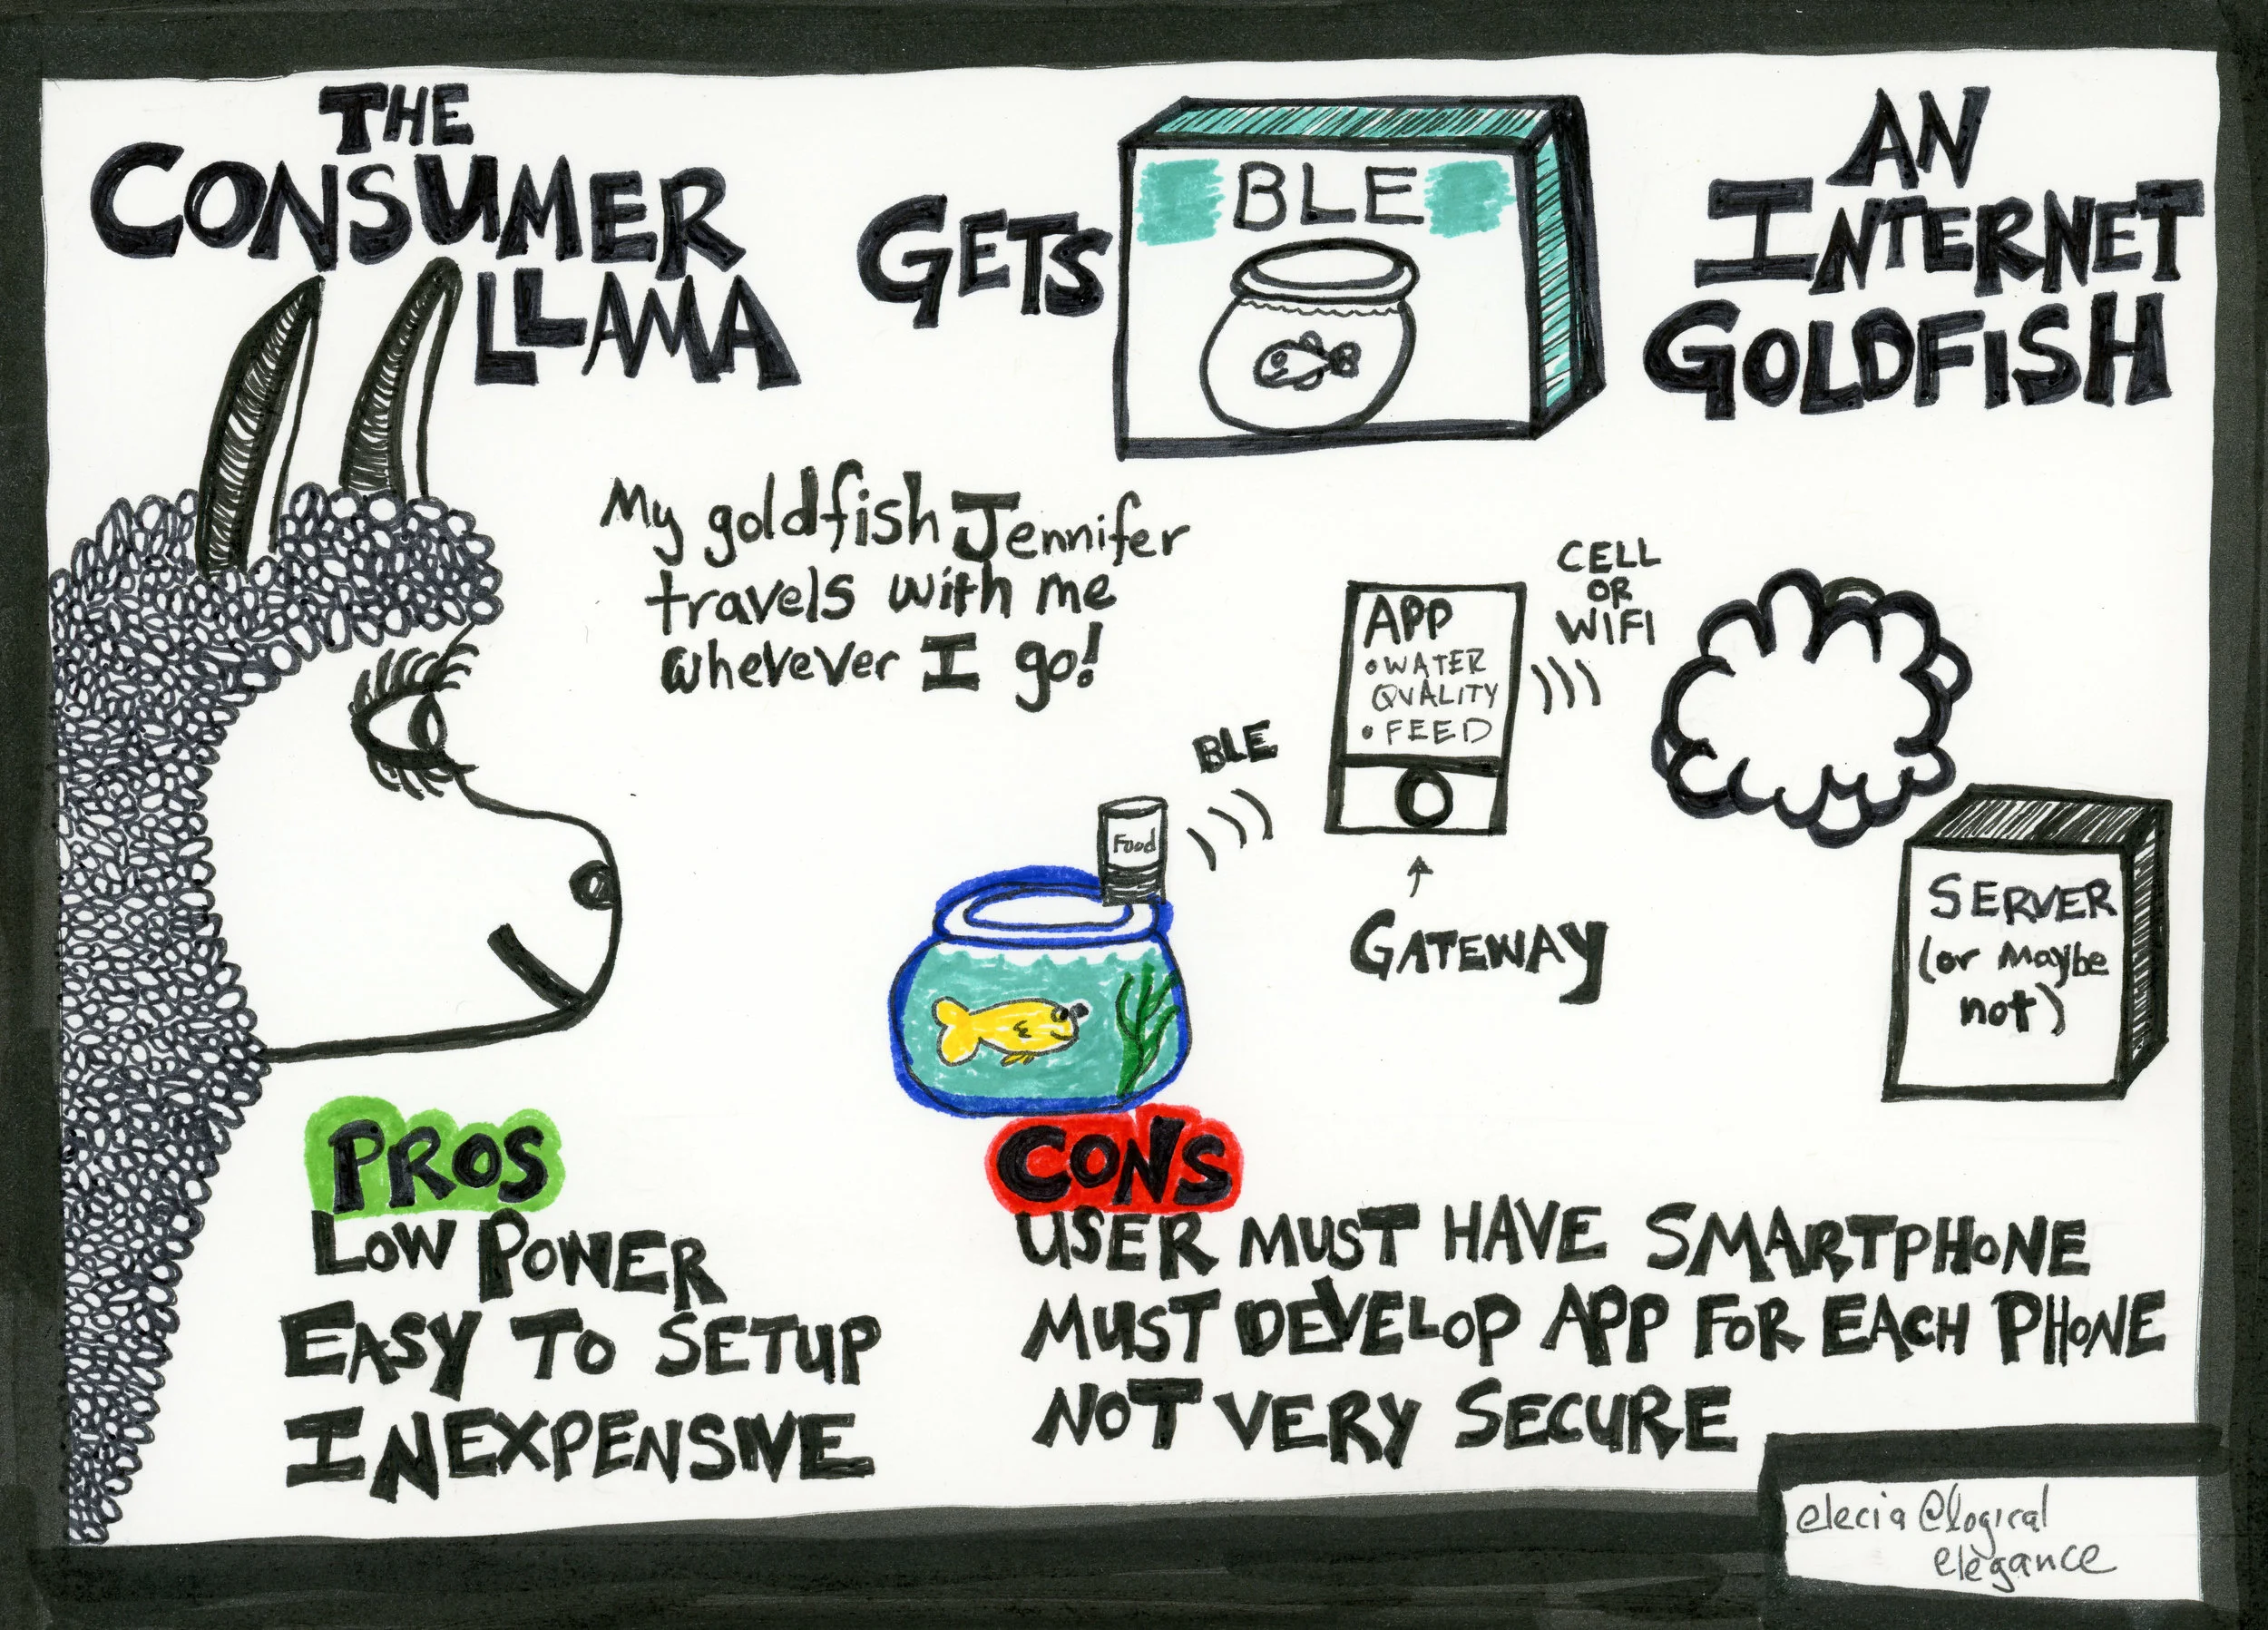 THE
CONSUMER
LLAMA
GETS
BLE
AN
INTERNET
GOLDFISH
My goldfish Jennifer
travels with me
wherever I go!
Food
BLE
APP
• WATER
QUALITY
• FEED
GATEWAY
CELL
OR
WIFI
SERVER
(or maybe
not)
PROS
LOW POWER
EASY TO SETUP
INEXPENSIVE
CONS
USER MUST HAVE SMARTPHONE
MUST DEVELOP APP FOR EACH PHONE
NOT VERY SECURE
elecia@logical
elegance